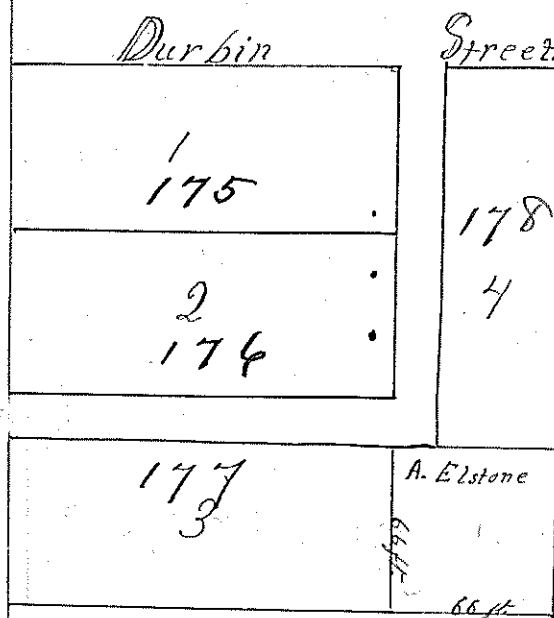 Durbin Street
1
175
178
4
2
176
177
3
A. Elstone
66 ft.
66 ft.